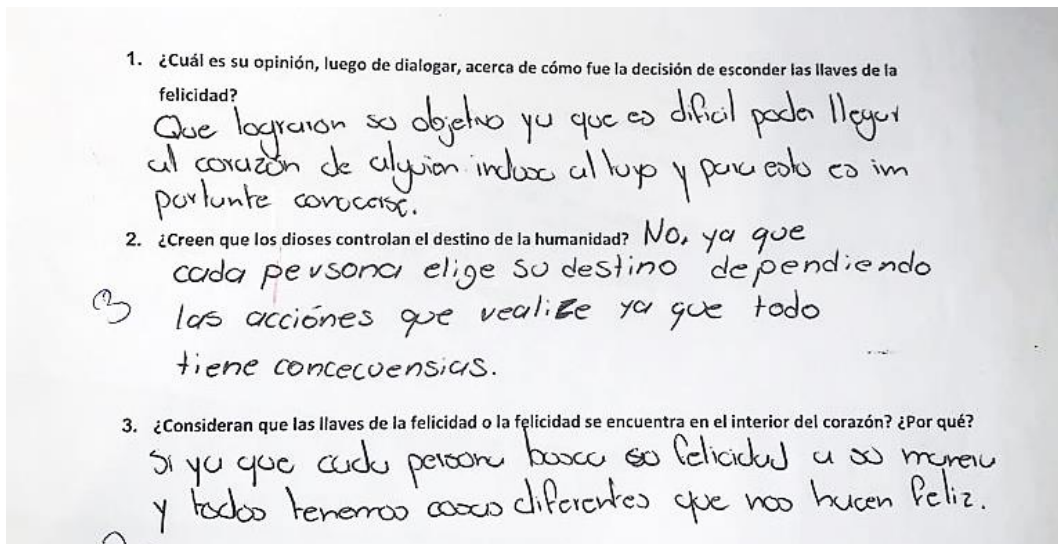 1. ¿Cuál es su opinión, luego de dialogar, acerca de cómo fue la decisión de esconder las llaves de la
felicidad?
Que lograron su objetivo ya que es dificil poder llegar
al corazón de alguien incluso al tuyo y para esto es im
portante conocerse.
2. ¿Creen que los dioses controlan el destino de la humanidad? No, ya que
cada persona elige su destino dependiendo
las acciónes que realize ya que todo
tiene concecuensias.
3. ¿Consideran que las llaves de la felicidad o la felicidad se encuentra en el interior del corazón? ¿Por qué?
Si ya que cada persona busca su felicidad a su manera
y todos tenemos cosas diferentes que nos hacen feliz.